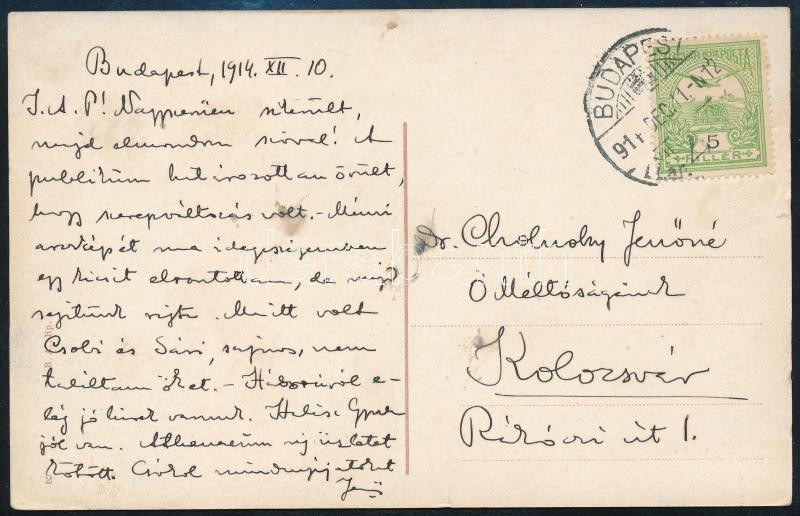 Budapest, 1914. XII. 10.
I. A. P! Nagyszerűen sikerült,
majd elmondom szóval! A
publikum határozottan örült,
hogy szerepváltozás volt. – Mámi
arcképét ma idegességemben
egy kicsit elrontottam, de majd
segítünk rajta. Mi itt volt
Csobi és Sári, sajnos, nem
találtam őket. – Háborúról e-
lég jó hírek vannak. Gyula
jól van. Athenaeum új üzletet
kötött. Csókol mindnyájatokat
Jenő
BUDAPEST
914 DEC. 11. N 12
MAGYAR KIR. POSTA
5
FILLÉR
Dr. Cholnoky Jenőné
Ő Méltóságának
Kolozsvár
Rákóczi út 1.
darabanth